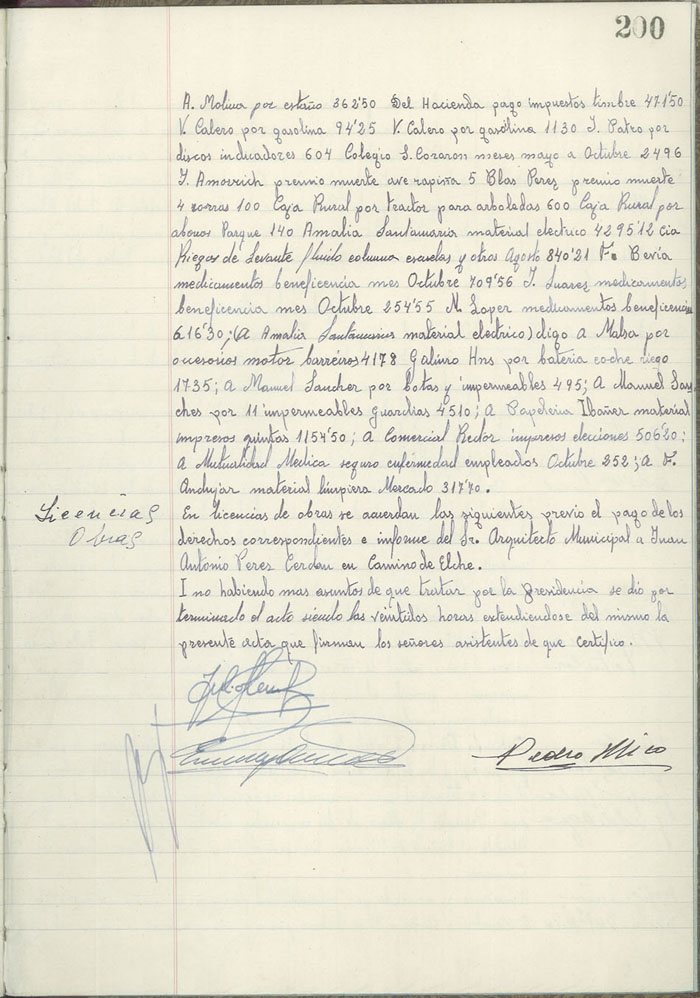 200
A. Molina por estaño 362'50 Del Hacienda pago impuestos timbre 471'50
V. Calero por gasolina 94'25 V. Calero por gasolina 1130 J. Patro por
discos indicadores 604 Colegio S. Corazon meses mayo a Octubre 2496
J. premio muerte ave rapiña 5 Blas Perez premio muerte
4 zorras 100 Caja Rural por tractor para arboledas 600 Caja Rural por
abonos Parque 140 Amalia Santamaria material electrico 4295'12 Cia
Riegos de Levante fluido columna escuelas y otros Agosto 840'21 F. Bevía
medicamentos beneficencia mes Octubre 709'56 J. Suarez medicamentos
beneficencia mes Octubre 254'55 N. Lopez medicamentos beneficencia
616'30; (A Amalia Santamaria material electrico) digo a Malsa por
accesorios motor barreiros 4178 Galúro Hns por bateria coche riego
1735; A Manuel Sanchez por botas y impermeables 495; A Manuel San-
ches por 11 impermeables Guardias 4510; A Papeleria Ibañez material
impresos quintas 1154'50; A Comercial Rector impresos elecciones 506'20;
A Mutualidad Medica seguro enfermedad empleados Octubre 252; A F.
Andujar material limpiera Mercado 317'70.
Licencias
Obras
En licencias de obras se acuerdan las siguientes previo el pago de los
derechos correspondientes e informe del Sr. Arquitecto Municipal a Juan
Antonio Perez Cerdan en Camino de Elche.
I no habiendo mas asuntos de que tratar por la Presidencia se dió por
terminado el acto siendo las veintidos horas extendiendose del mismo la
presente acta que firman los señores asistentes de que certifico.
Pedro Mico